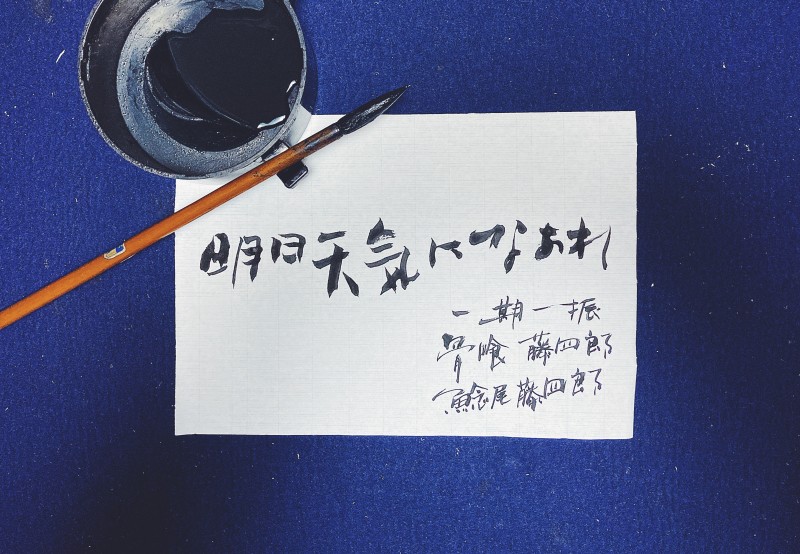 明日天気になあれ
一期一振
骨喰 藤四郎
鯰尾藤四郎